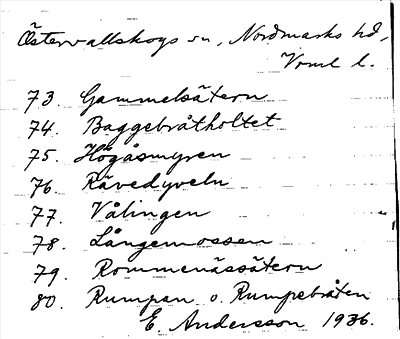 Östervallskogs sn, Nordmarks hd,
Vrml l.
73. Gammelsätern
74. Baggebråtholtet
75. Högåsmyren
76. Rävedyveln
77. Vålingen
78. Långemossen
79. Rommenässätern
80. Rumpan o. Rumpebråten
E. Andersson 1936.